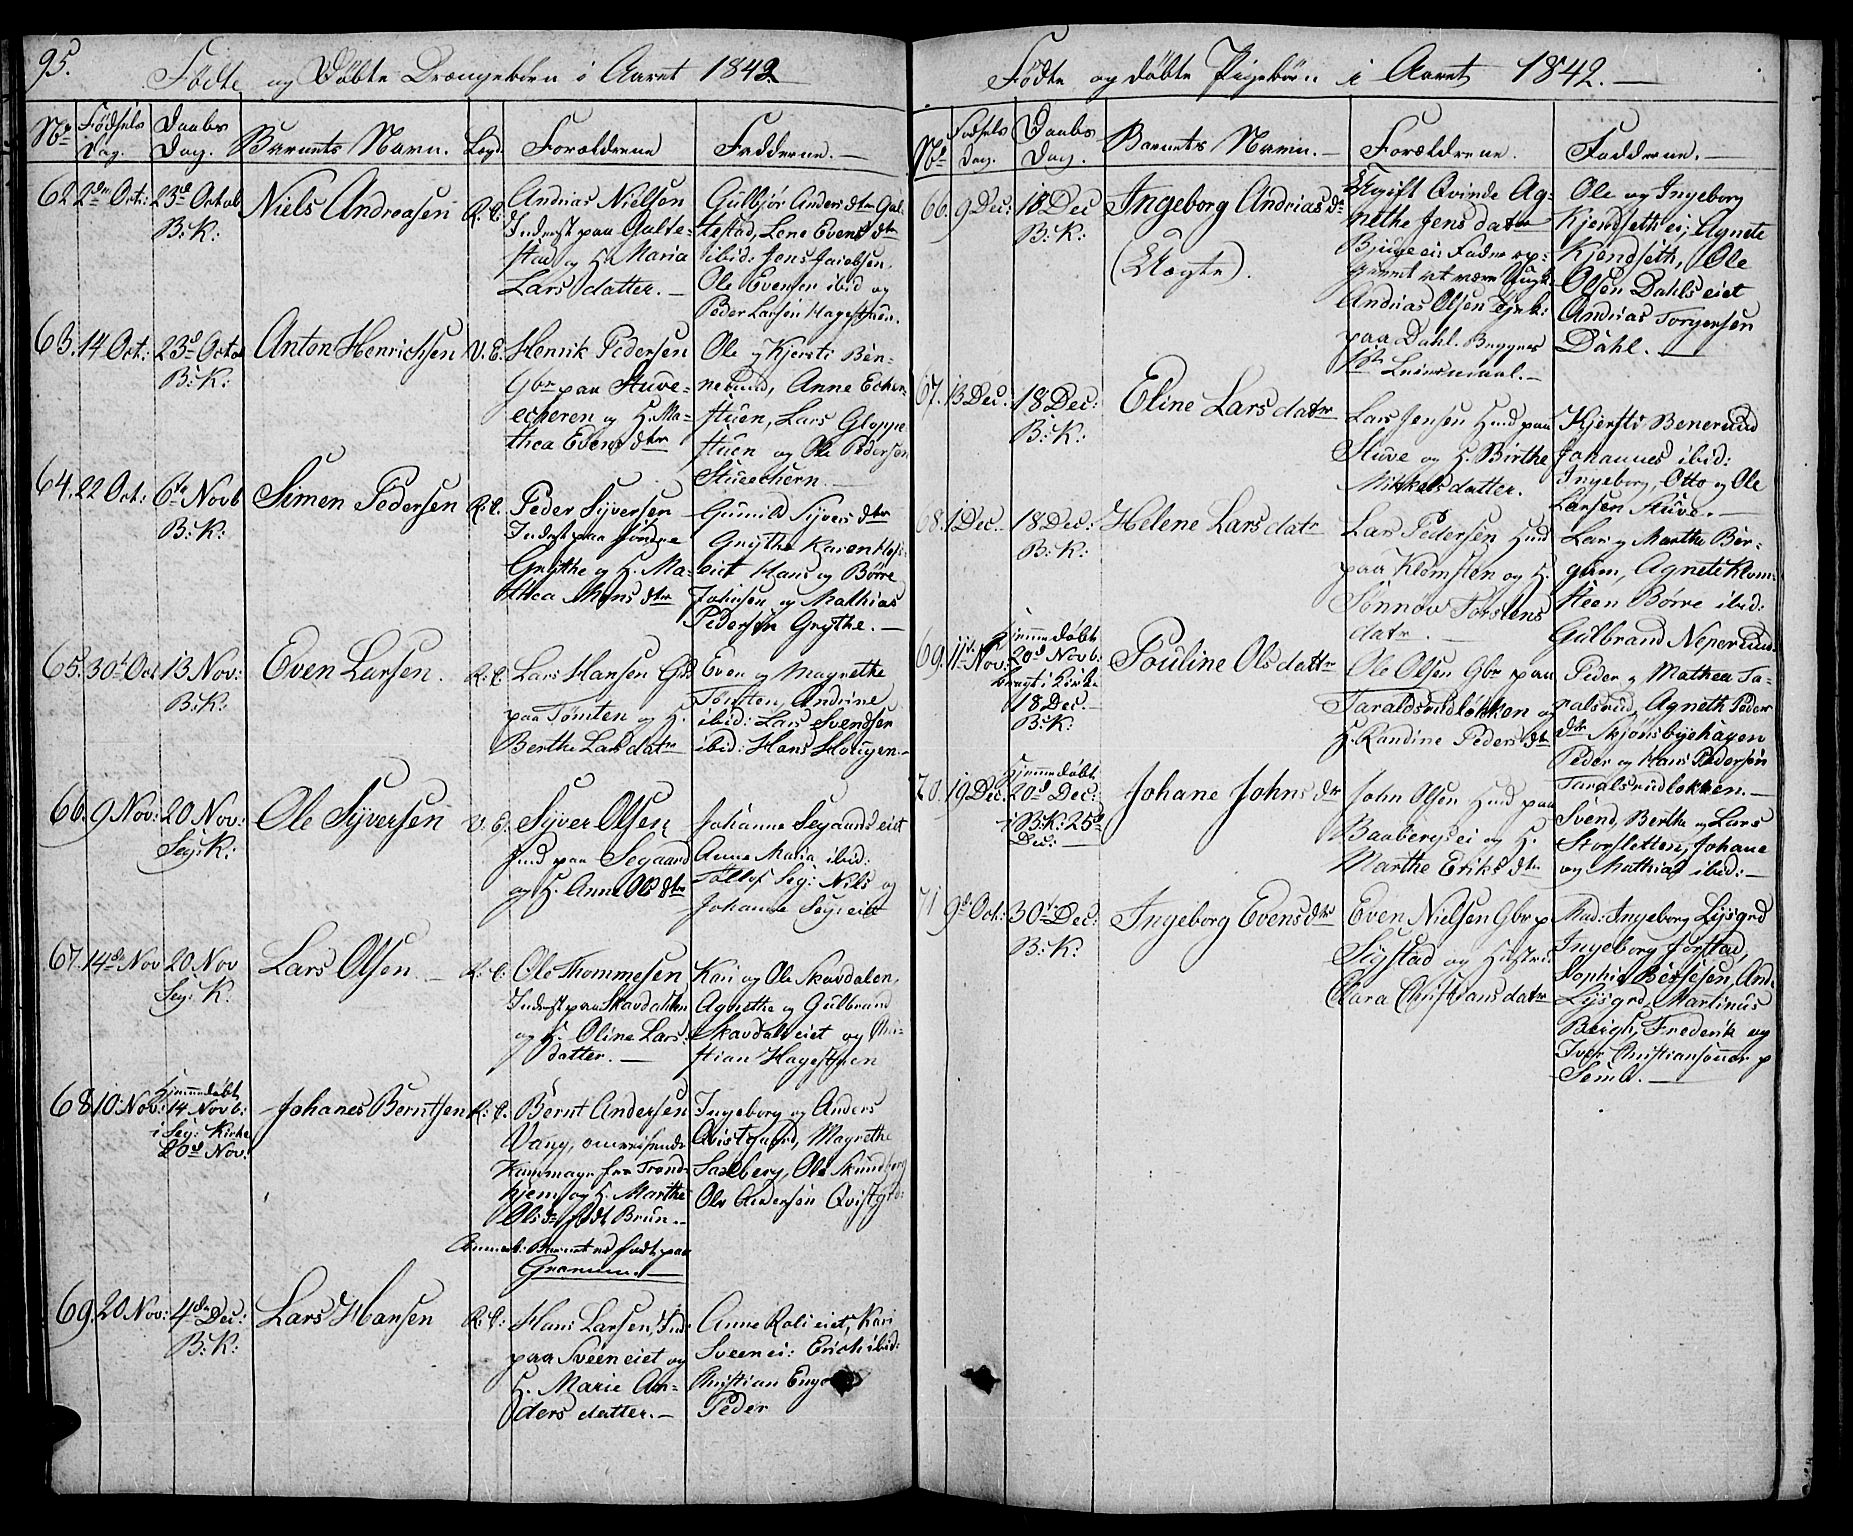 95.
Fødte og Døbte Drængebørn i Aaret 1842
No Fødsels Dag. Daabs Dag. Barnets Navn. Lægd Forældrene Fadderne. —
62 2den Oct: 23d Octob B: K: Niels Andreasen R: E:
Andrias Nielsen
Inderst paa Galte-
stad og H. Maria
Lars datter. —
Gulbjør Anders dtr Gal-
testad, Lene Evens dtr
ibid: Jens Jacobsen,
Ole Evensen ibid og
Peder Larsen Hagestuen.
63. 14 Oct: 23d Octob B: K: Anton Henrichsen V. E.
Henrik Pedersen
Gbr paa Stuve-
echeren og H. Ma-
thea Evens dtr
Ole og Kjersti Ben-
nerund, Anne Echern-
stuen, Lars Gloppe
stuen og Ole Pedersen
Stueechern. —
64. 22 Oct: 6te Novb B: K: Simen Pedersen R: E.
Peder Syversen
Inderst paa søndre
Grythe og H. Ma-
thea Mons dtr
Gunild Syvers dtr
Grythe Karen Hofs-
eiet Hans og Børre
Johnsen og Mathias
Pedersen Grythe. —
65. 30t Oct 13 Nov: B: K: Even Larsen. R: E
Lars Hansen Gbr
paa Tømten og H.
Berthe Lars datr
Even og Magrethe
Tømten, Andrine
ibid: Lars Svendsen
ibid: Hans Hougen. —
66. 9 Nov: 20 Nov: Seg: K: Ole Syversen V. E.
Syver Olsen
Hmd paa Segaard
og H. Anne Ols dtr
Johanne Segaardseiet
Anne Maria ibid:
Tollof Seg: Nils og
Johanne Seg: eiet
67. 14de Nov 20 Nov Seg: K: Lars Olsen — R: E:
Ole Thommesen
Inderst paa Skavdahlen
og H. Oline Lars
datter. —
Kari og Ole Skavdalen,
Agnethe og Gulbrand
Skavdalseiet og Chri-
stian Hagestuen
68. 10. Nov: Hjemmedøbt 14 Novb: i Seg: Kirke 20d Nov. Johanes Berntsen R: E.
Bernt Andersen
Vang, omreisende
Kammager fra Trond-
hjem og H. Marthe
Olsdr født Brun. —
Anmerk: Barnet er født paa
Gramm. —
Ingeborg og Anders
Qvistgaard, Magrethe
Saxlberg, Ole Skundberg
Ole Andersen Qvistgrd:
69. 20 Nov: 4de Dec: B: K: Lars Hansen R: E:
Hans Larsen, Ind:
paa Sveen eiet og
H. Marie An-
ders datter. —
Anne Roli eiet, Kari
Sveen ei: Erich ibid:
Christian
Peder
Fødte og døbte Pigebørn i Aaret 1842. —
No Fødsels Dag. Daabs Dag. Barnets Navn. — Forældrene. Fadderne. —
66. 9 Dec: 18 Dec B: K: Ingeborg Andrias dr (Uægte).
Ugift Qvinde Ag-
nethe Jens datr
Bjuge ei: Fader op-
givet at være Ungk.
Andrias Olsen Tjenk:
paa Dahl. Begges
1ste Leiermaal. —
Ole og Ingeborg
Kjendseth ei; Agnete
Kjendseth, Ole
Olsen Dahls eiet
Andrias Torgersen
Dahl. —
67. 13 Dec: 18 Dec: B: K: Eline Lars datr
Lars Jensen Hmd paa
Stuve og H. Birthe
Mikkels datter.
Kjersti Benerund
Johannes ibid:
Ingeborg, Otto og Ole
Larsen Stuve. —
68. 1 Dec. 18 Dec: B: K: Helene Lars datr
Lars Pedersen Hmd
paa Klomsten og H.
Sønnøv Torstens
datr. —
Lars og Marthe Ber-
gum, Agnete Klom-
steen Børre ibid:
Gulbrand Neperud:
69. 11te Nov: Hjemmedøbt 20d Novb: bragt i Kirke 18 Dec. — B: K: Pouline Ols dattr
Ole Olsen Gbr paa
Taraldsrudløkken og
H. Randine Peders dtr
Peder og Mathea Ta-
ralsrud, Agneth Peder
dtr Skjønsbyehagen
Peder og Hans Pedersen
Taralsrudløkken. —
70. 19 Dec. Hjemmedøbt 20d Dec: i B: K: 25d Dec: — Johane Johns dtr
John Olsen Hmd paa
Baabergs ei og H.
Marthe Eriks dtr.
Svend, Berthe og Lars
Storsletten, Johane
og Mathias ibid: —
71 9de Oct: 30te Dec: B: K: Ingeborg Evens dtr
Even Nielsen Gbr p
Sigstad og Hustru
Clara Christians datr
Mad: Ingeborg Lysgrd
Ingeborg Forstad,
Sophie Bersesen, And.
Lysgrd, Martinus
Bergh, Frederik og
Iver Christiansønner p
Semb. —